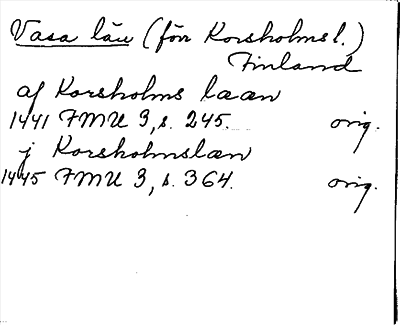 Vasa län (förr Korsholmsl.)
Finland
af Korsholms laan
1441 FMU 3, s. 245. orig.
j Korsholmslæn
1445 FMU 3, s. 364. orig.